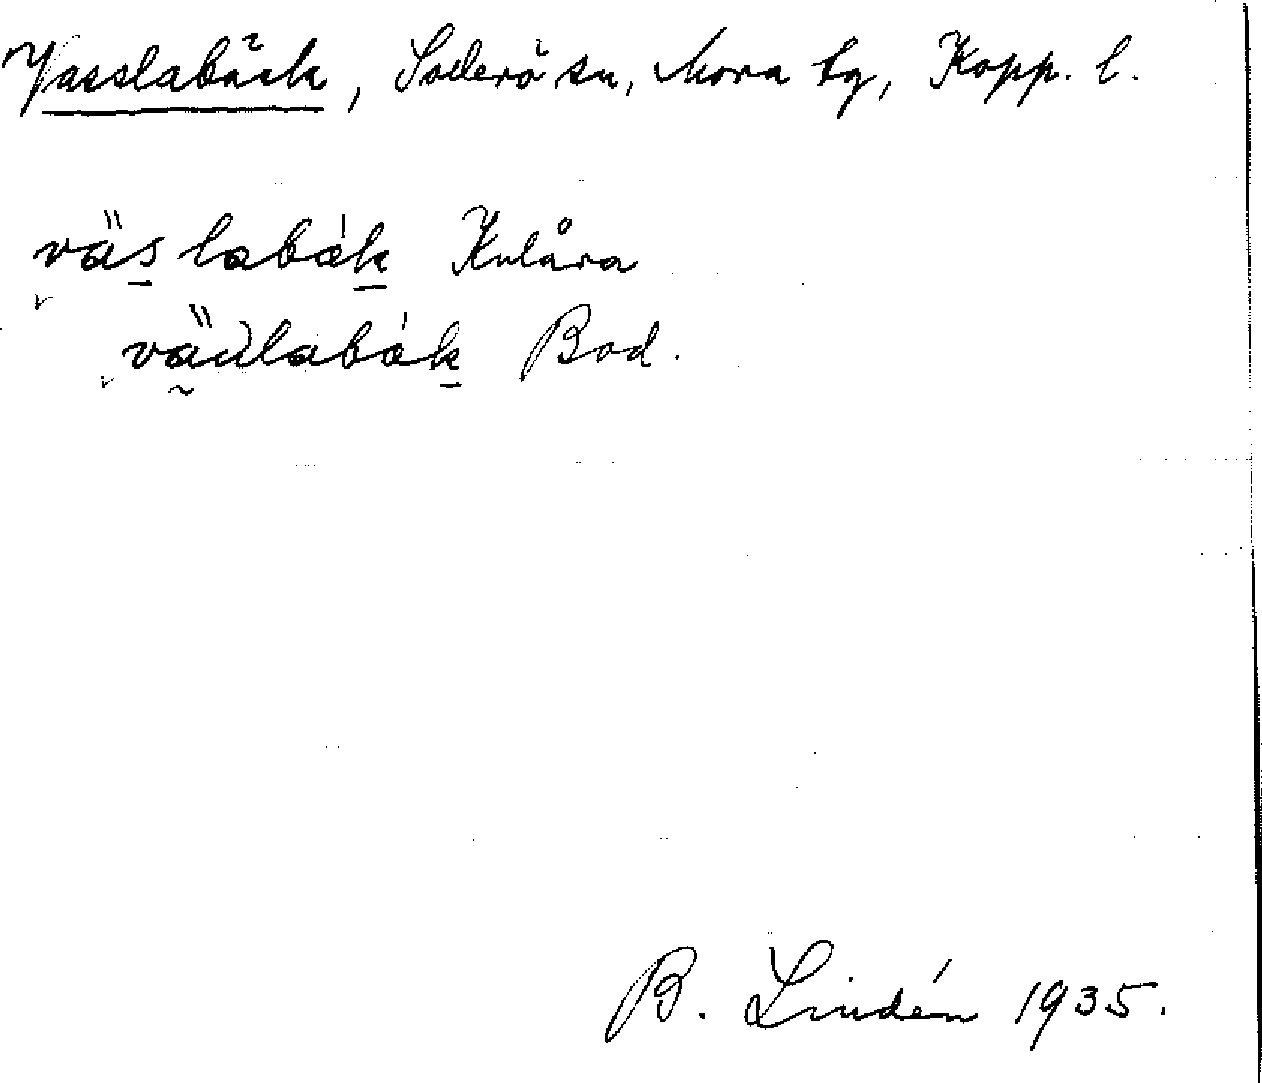 Vasslabäck, Sollerö sn, Mora tg, Kopp. l.
väslabák Kulåra
Bod.
B. Lindén 1935.